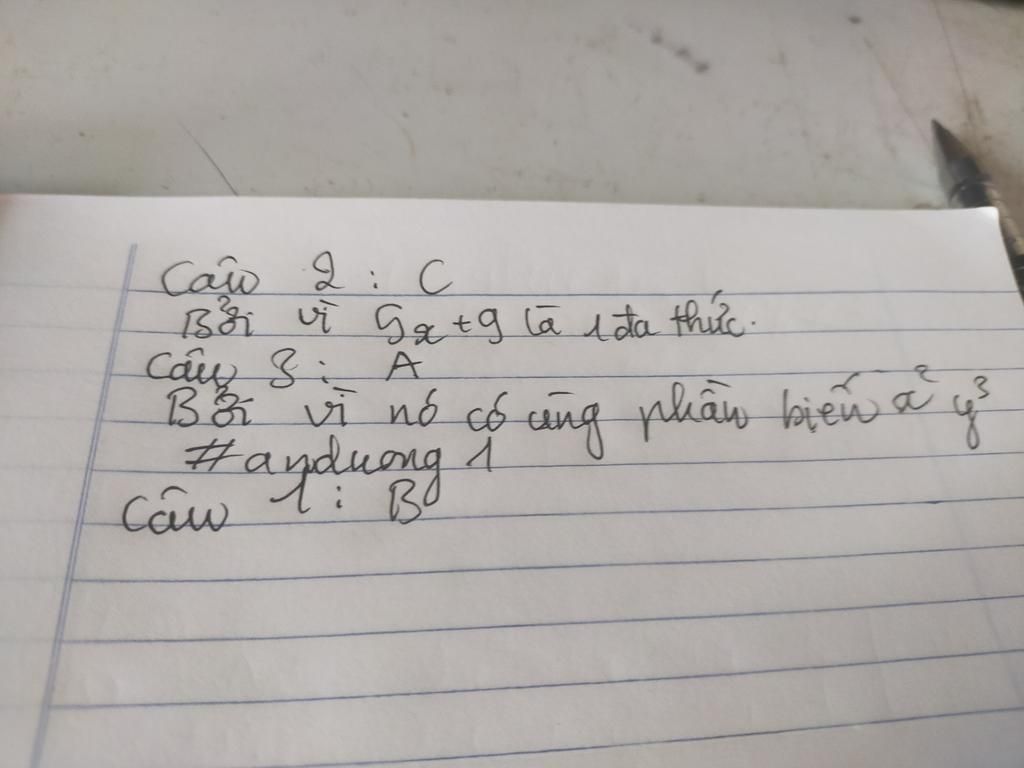 Câu 2 : C
Bởi vì 5x + 9 là 1 đa thức.
Câu 3 : A
Bởi vì nó có cùng phần biến x² y³
#anduong 1
Câu 1 : B